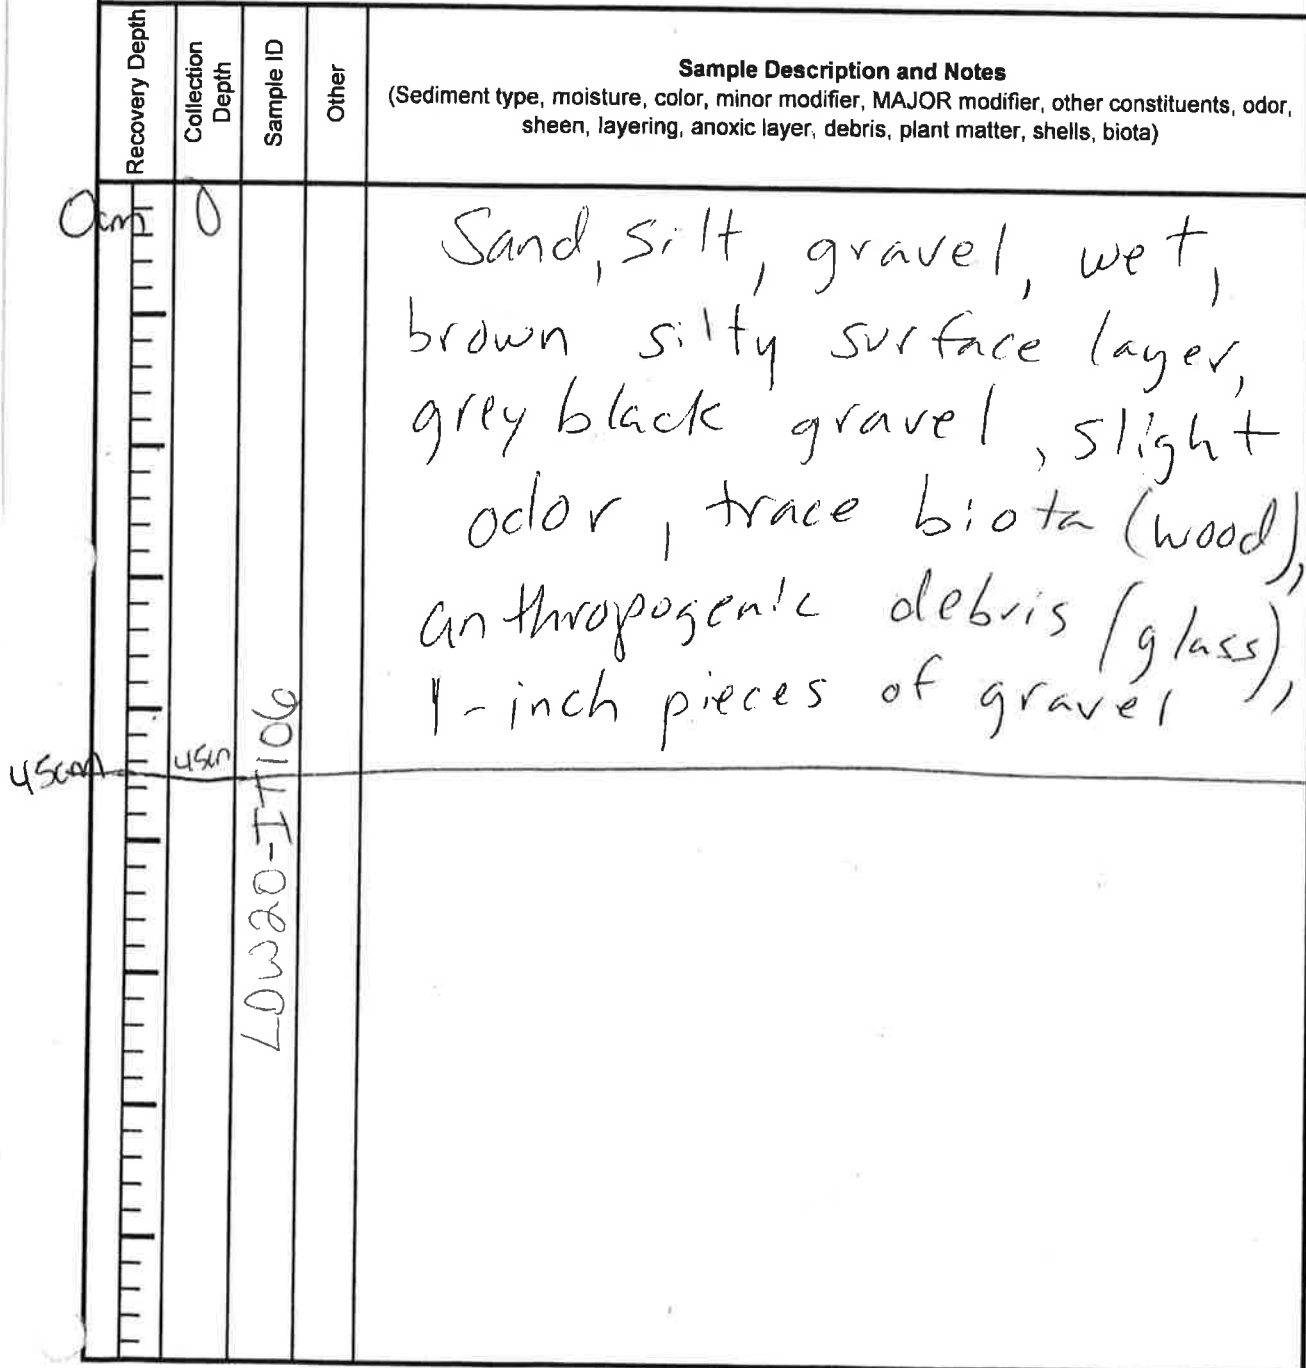 Recovery Depth
Collection Depth
Sample ID
Other
Sample Description and Notes
(Sediment type, moisture, color, minor modifier, MAJOR modifier, other constituents, odor,
sheen, layering, anoxic layer, debris, plant matter, shells, biota)
0cm
0
Sand, silt, gravel, wet,
brown silty surface layer,
grey black gravel, slight
odor, trace biota (wood),
anthropogenic debris (glass),
1-inch pieces of gravel
45cm
45cm
LDW20-IT106